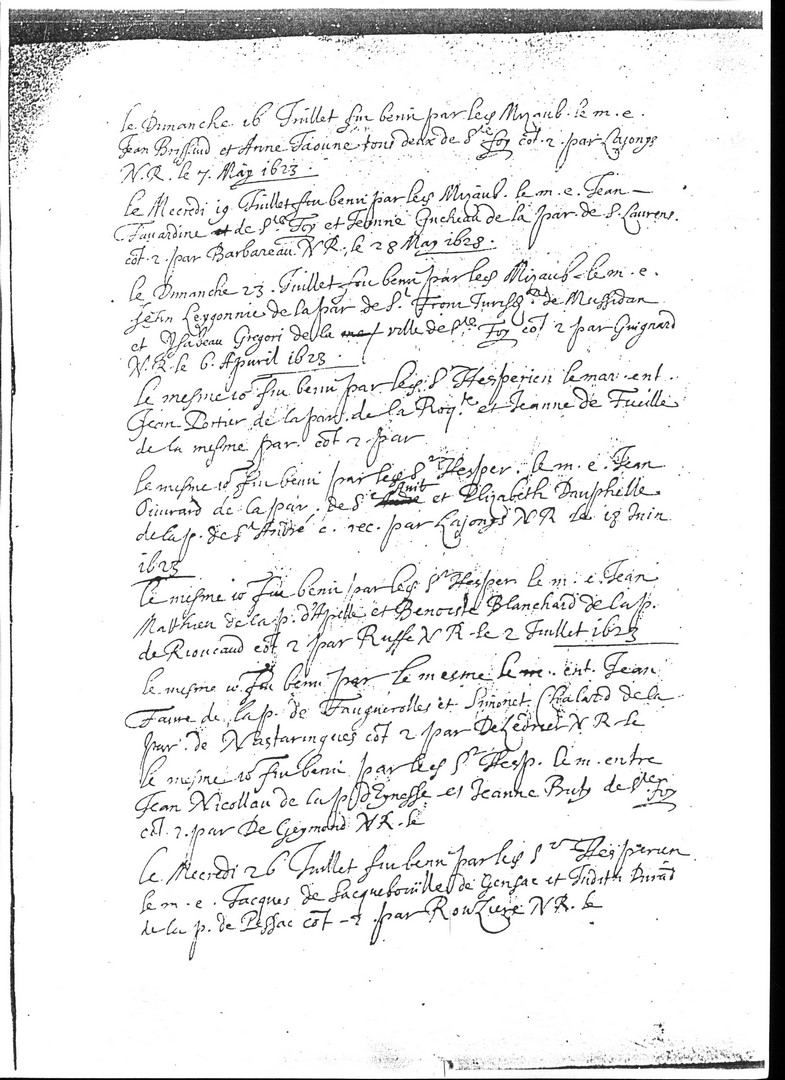 le Dimanche 16 Juillet fut beni par led Mizaub. le m. e.
Jean Brissaud et Anne Jaoune tous deux de Ste Foy cot. 2. par Lajonys
N. R. le 7. May 1623.
le Mecredi 19 Juillet fut beni par led Mizaub. le m. e. Jean
Favardine de Ste Foy et Jeanne Gucheau de la par de S. Laurens.
cot. 2. par Barbareau N R. le 28 May 1623.
le Dimanche 23. Juillet fut beni par led Mizaub. le m. e.
Jean Leygonnie de la par de St Front de Mussidan
et Ysabeau Gregori de la ville de Ste Foy cot 2 par Guignard
N. R. le 6. Apvril 1623.
le mesme io fut beni par led Sr Hesperien le mar. ent.
Jean Portier de la par. de la Roq.te et Jeanne de Fueille
de la mesme par. cot. 2. par
le mesme io fut beni par led Sr Hesper. le m. e. Jean
Ouvrard de la par. de St Avit et Elizabeth Dauphelle
de la p. de St André c. rec. par Lajonys N R le 18 Juin
1623
le mesme io fut beni par led Sr Hesper. le m. e. Jean
Mathieu de la p. d'Apelle et Benoiste Blanchard de la p.
de Rioucaud cot 2 par Ruffe N R. le 2 Juillet 1623
le mesme io fut beni par le mesme le m. ent. Jean
Faure de la p. de Fauguerolles et Simonet Chalard de la
par. de Nastaringues cot 2 par De Ledrier N R. le
le mesme io fut beni par led Sr Hesp. le m. entre
Jean Nicollau de la p. d'Eynesse et Jeanne Buty de Ste Foy
cot. 2. par De Geymond N R. le
le Mecredi 26 Juillet fut beni par led Sr Hesperien
le m. e. Jacques de Jacquebouille de Gensac et Judith Durand
de la p. de Pessac cot 2 par Rouziere N R. le